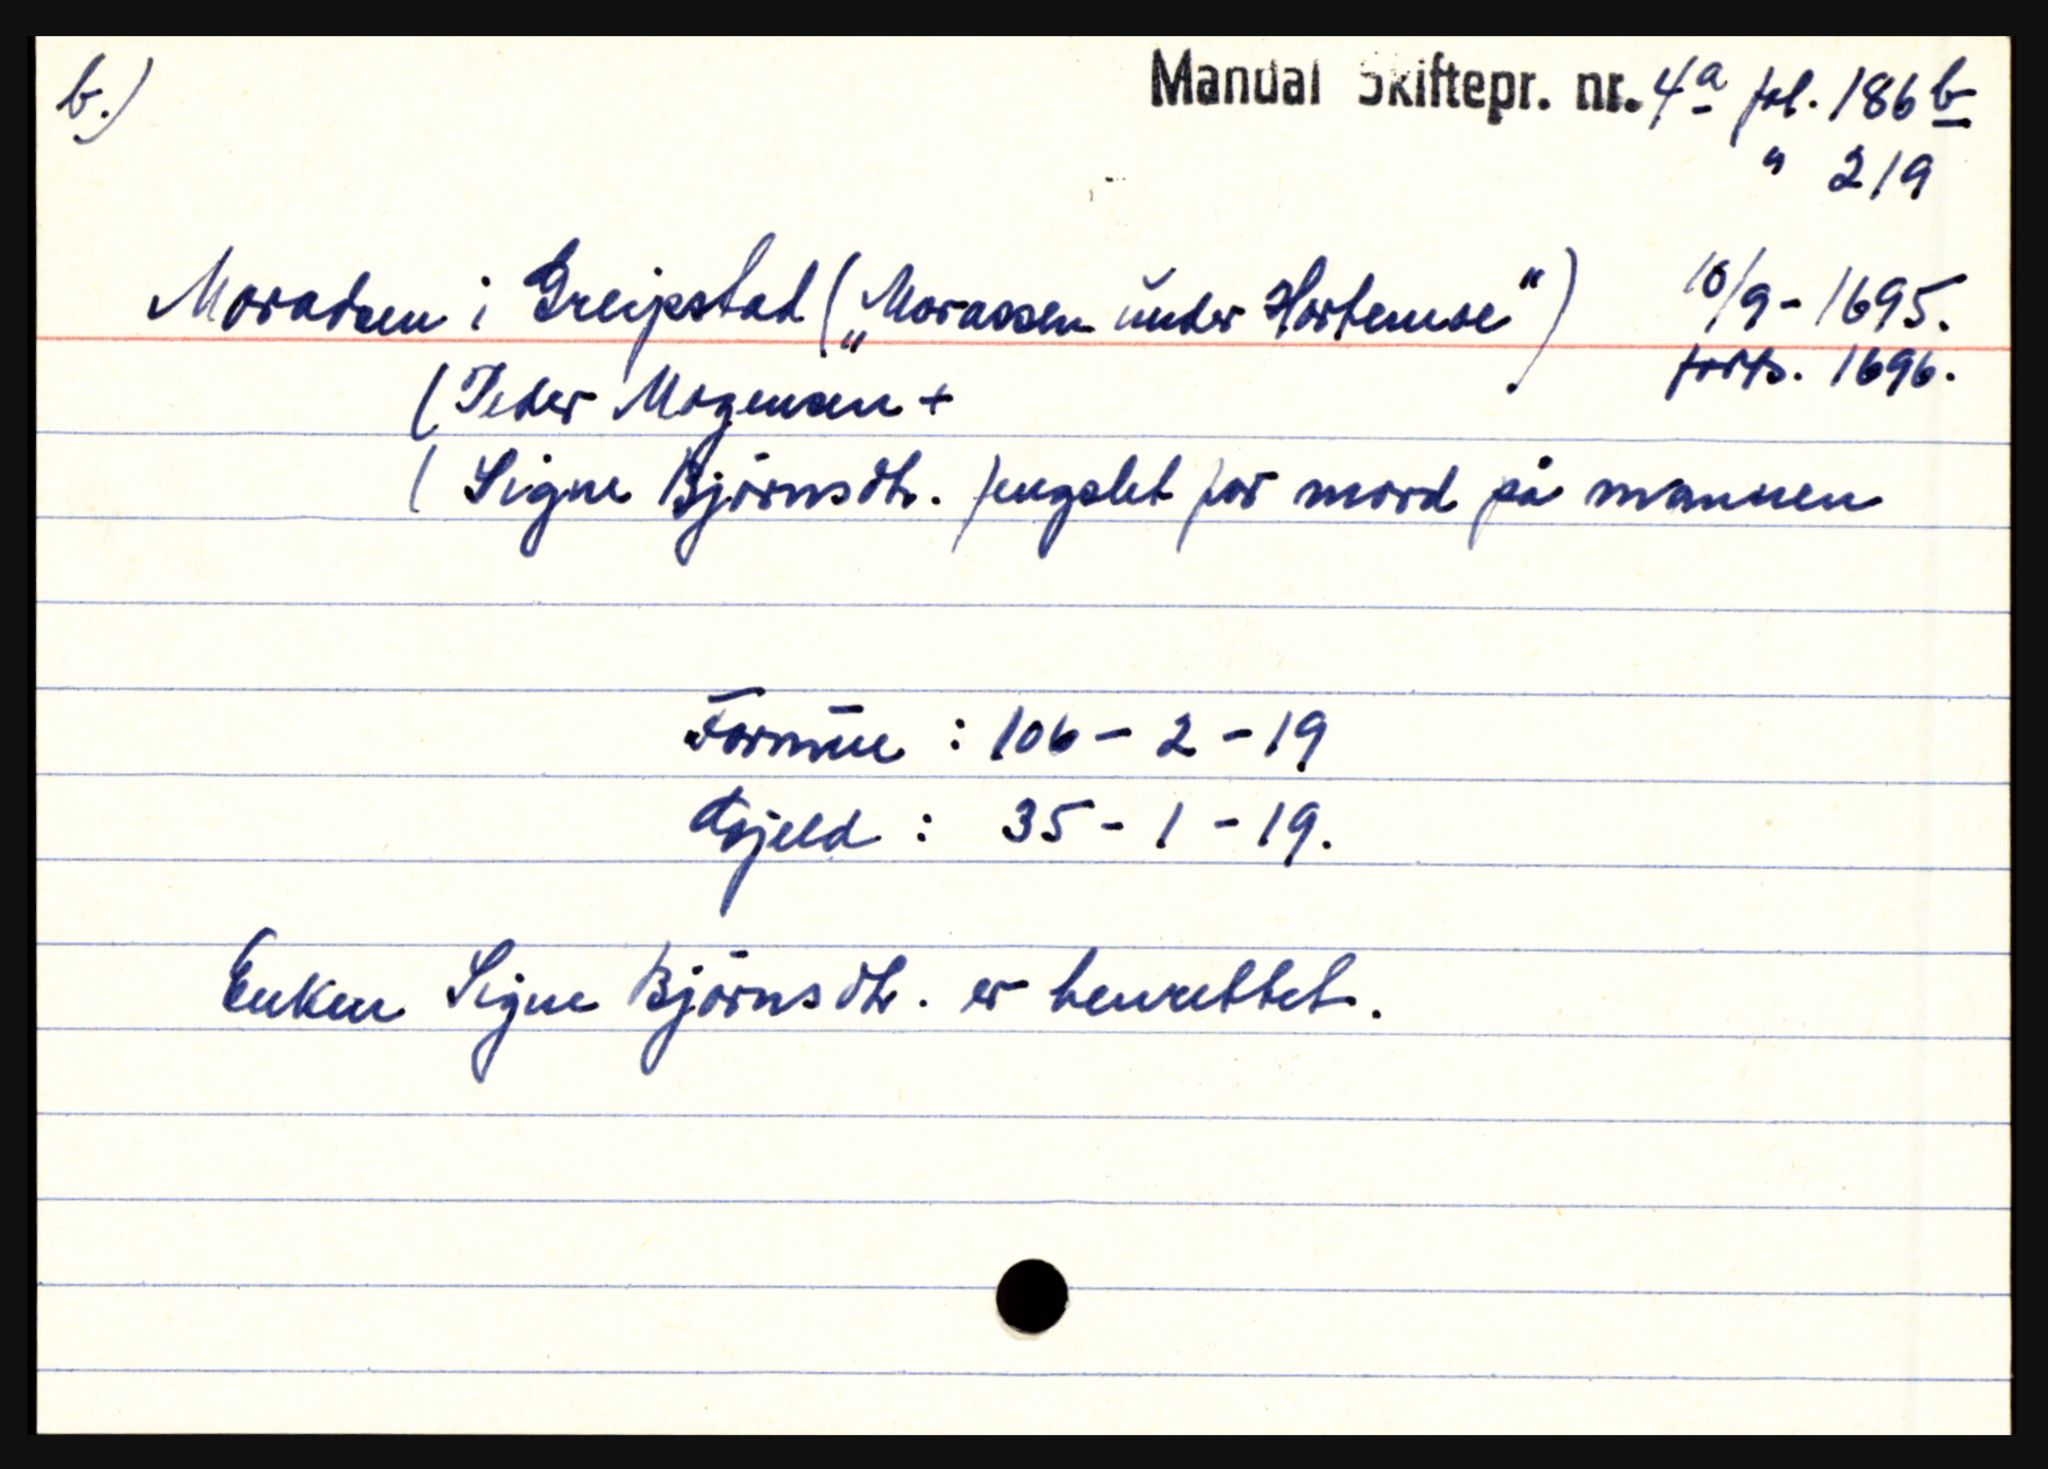 b.) Mandal Skiftepr. nr. 4a fol. 186b
" 219
Moradsen i Greipstad („Morassen under Hortemoe“) 10/9 - 1695.
forts. 1696.
(Peder Mogensen +
( Signe Björnsdtr. fengslet for mord på mannen
Formue : 106 - 2 - 19
Gjeld : 35 - 1 - 19.
Enken Signe Björnsdtr. er henrettet.